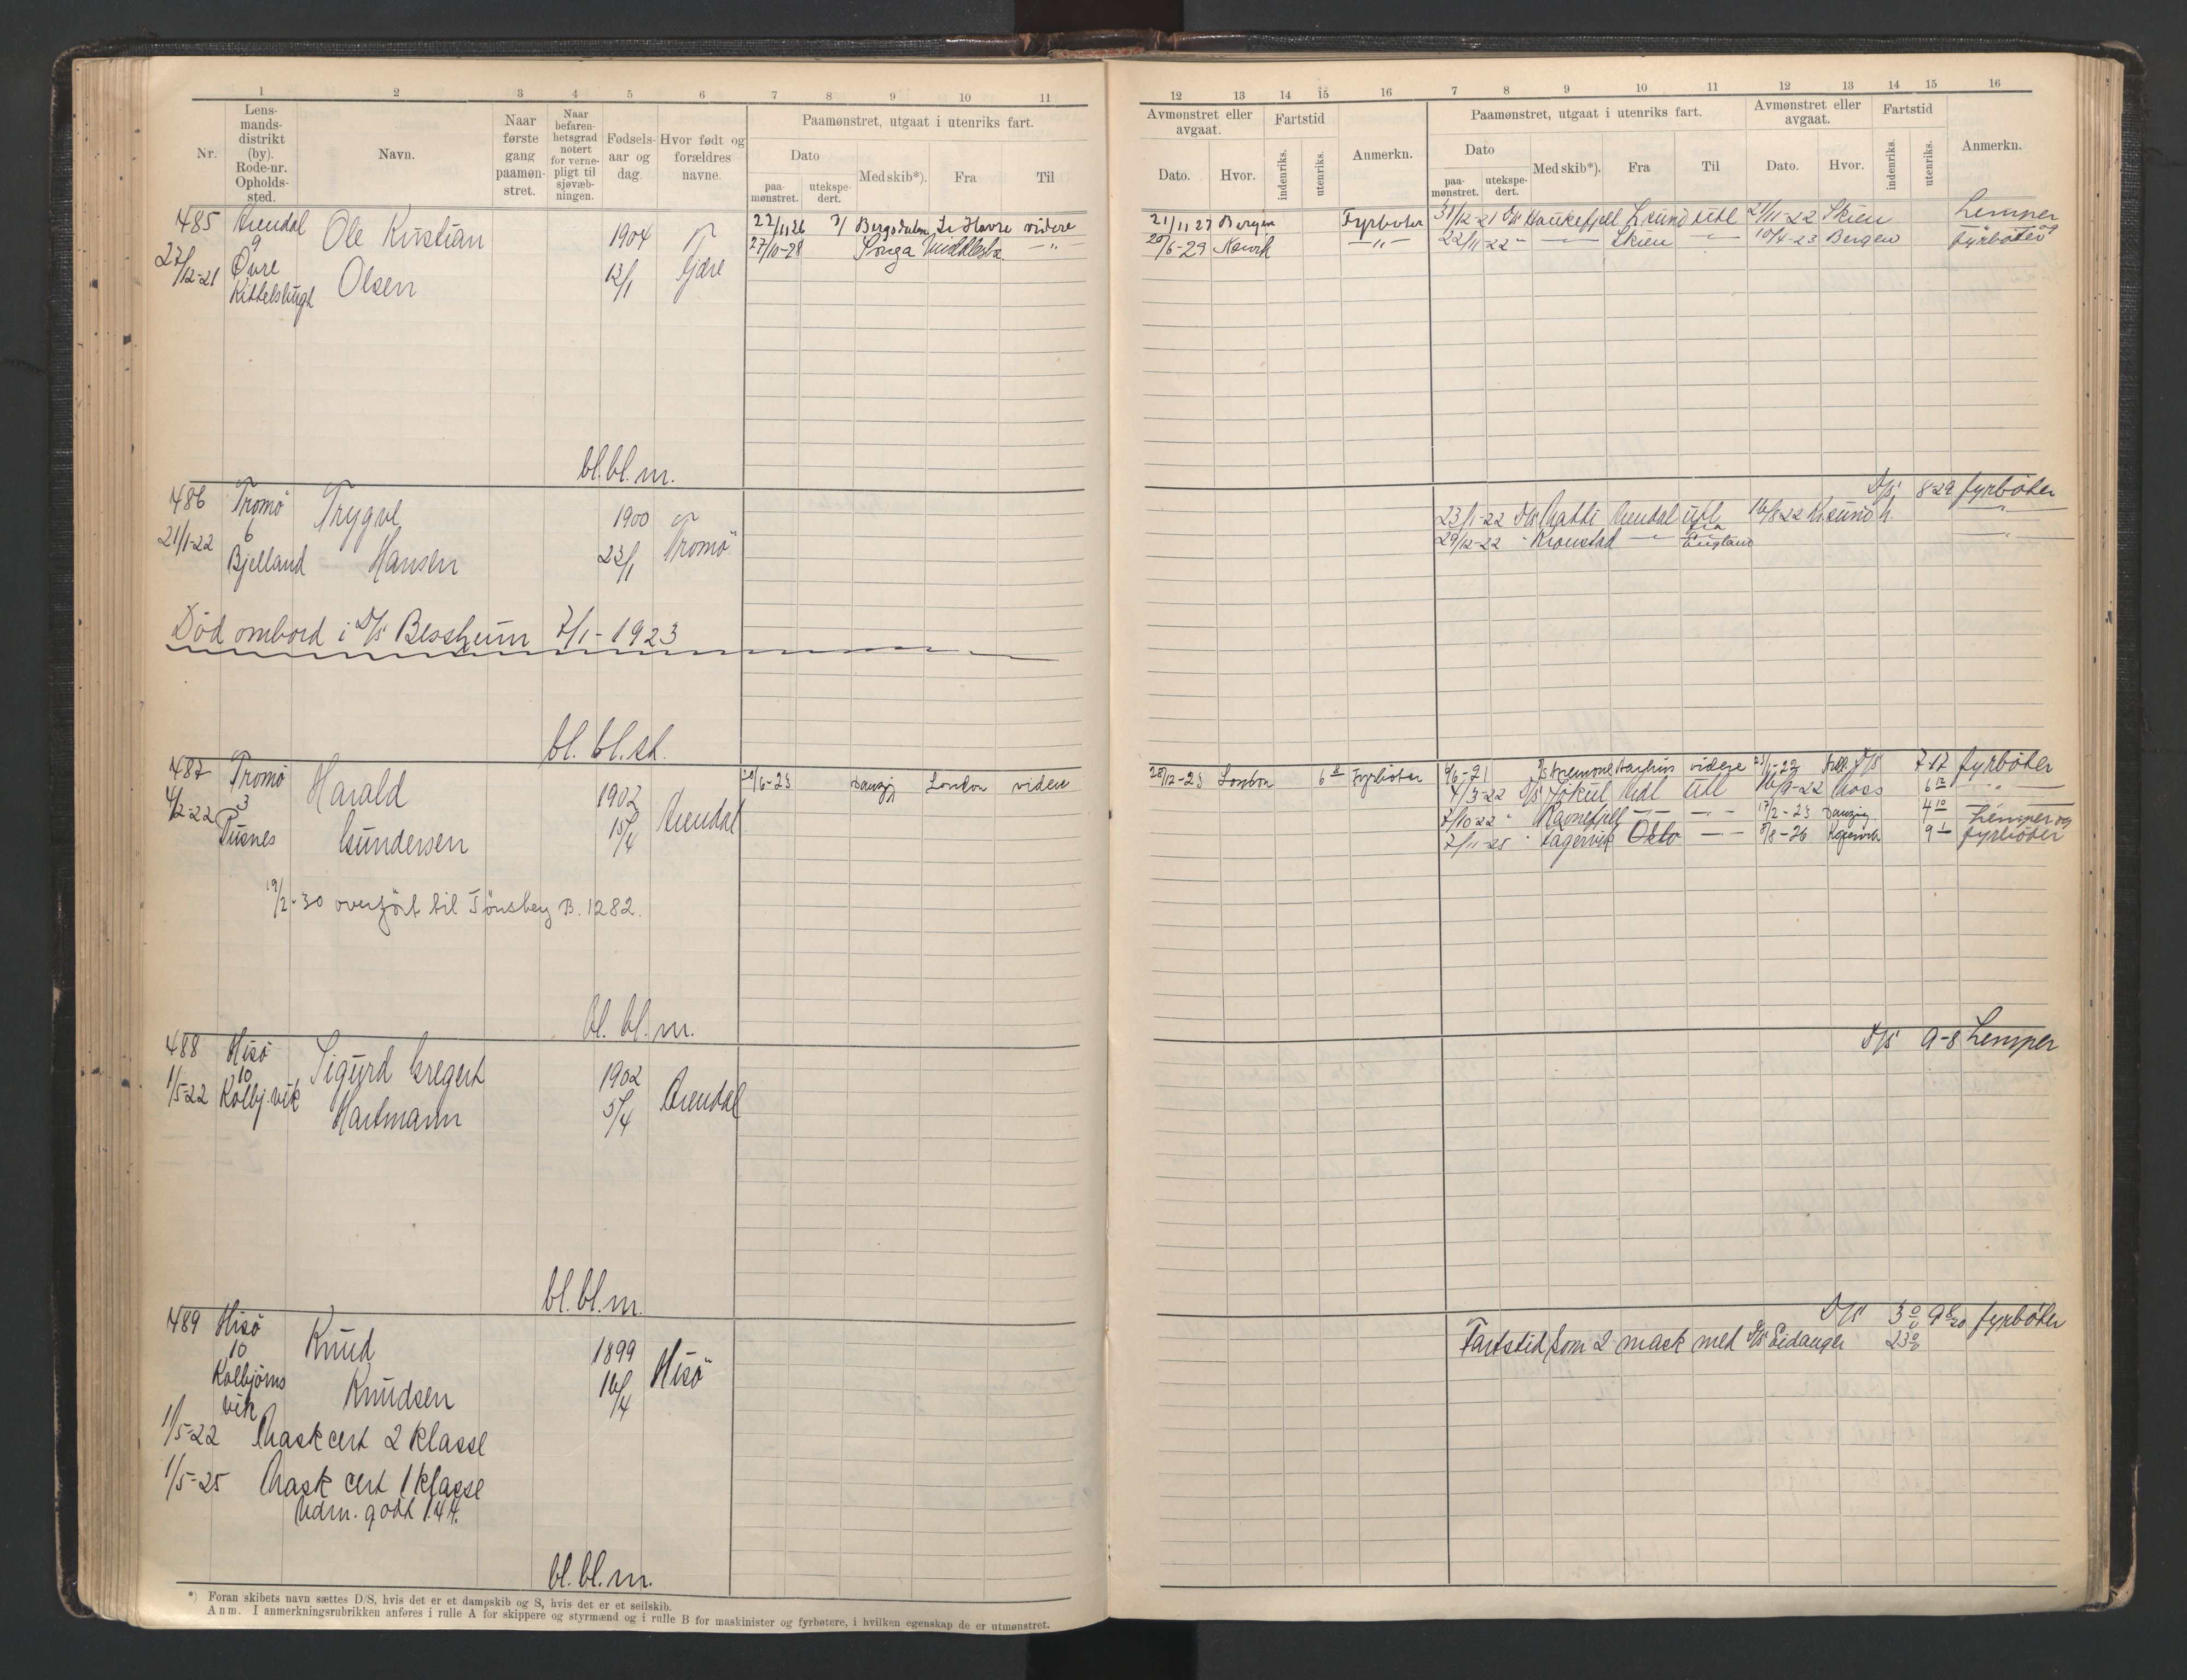 1 2 3 4 5 6 7 8 9 10 11
Nr.
Lens-
mands-
distrikt
(by).
Rode-nr.
Opholds-
sted.
Navn.
Naar
første
gang
paamøn-
stret.
Naar
befaren-
hetsgrad
notert
for verne-
pligt til
sjøvæb-
ningen.
Fødsels-
aar og
dag.
Hvor født og
forældres
navne.
Paamønstret, utgaat i utenriks fart.
Dato
paa-
mønstret.
utekspe-
dert.
Med skib*).
Fra
Til
485 Arendal Ole Kristian 1904
27/12-21 9 Øvre Olsen 13/1 Gjære
Kittelsbugt
22/11 26 Bergsdalen Le Havre videre
27/10-28 Songa Middlesbr. —"—
bl.bl.m.
486 Tromö Trygve 1900
21/1-22 6 Hansen 23/1 Tromö
Bjelland
Död ombord i D/S Bessheim 7/1-1923
bl. bl.st.
487 Tromö Harald 1902
4/2-22 3 Gundersen 15/4 Arendal
Pusnes
/6-23 Danzig London videre
19/2-30 overfört til Tönsberg B. 1282.
bl. bl. m.
488 Hisö Sigurd Gregert 1902
1/5-22 10 Kolbj.vik Hartmann 5/4 Arendal
bl.bl.m.
489 Hisö Knud 1899
10 Kolbjörns Knudsen 16/4 Hisö
vik
1/5-22 Mask cert 2 klasse
1/5-25 Mask cert 1 klasse
Udm. godt 1.44.
bl.bl.m.
*) Foran skibets navn sættes D/S, hvis det er et dampskib og S, hvis det er et seilskib.
Anm. I anmerkningsrubrikken anføres i rulle A for skippere og styrmænd og i rulle B for maskinister og fyrbøtere, i hvilken egenskap de er utmønstret.
12 13 14 15 16 7 8 9 10 11 12 13 14 15 16
Avmønstret eller
avgaat.
Dato.
Hvor.
Fartstid
indenriks.
utenriks.
Anmerkn.
Paamønstret, utgaat i utenriks fart.
Dato
paa-
mønstret.
utekspe-
dert.
Med skib*).
Fra
Til
Avmønstret eller
avgaat.
Dato.
Hvor.
Fartstid
indenriks.
utenriks.
Anmerkn.
21/11 27 Bergen Fyrböter 31/12-21 D/S Haukefjell Lsund utl 21/11-22 Skien Lemper
20/6-29 Narvik —"— 22/11-22 " — Skien — 10/4-23 Bergen og fyrböter
D/S 8-29 fyrböter
23/1-22 D/S Matti Arendal utl 16/8 22 Ksund —"—
29/12-22 " Kronstad —"— fra England —"—
28/12-23 London 6 8 Fyrböter 9/6-21 Aarhus videre D/S 7-17 fyrböter
4/3-22 D/S Jökul Adl utl 16/9-22 Moss 6 17 —"—
7/10 22 " Ravnefjell — —"— 17/2-23 Danzig 4 10 Lemper og
7/11-25 " Fagervik Oslo —"— 8/8-26 9 1 fyrböter
D/S 9-8 Lemper
D/S 3 0/0 9 8/20 fyrböter
Fartstid som 2 mask med D/S Eidanger 23 0/0